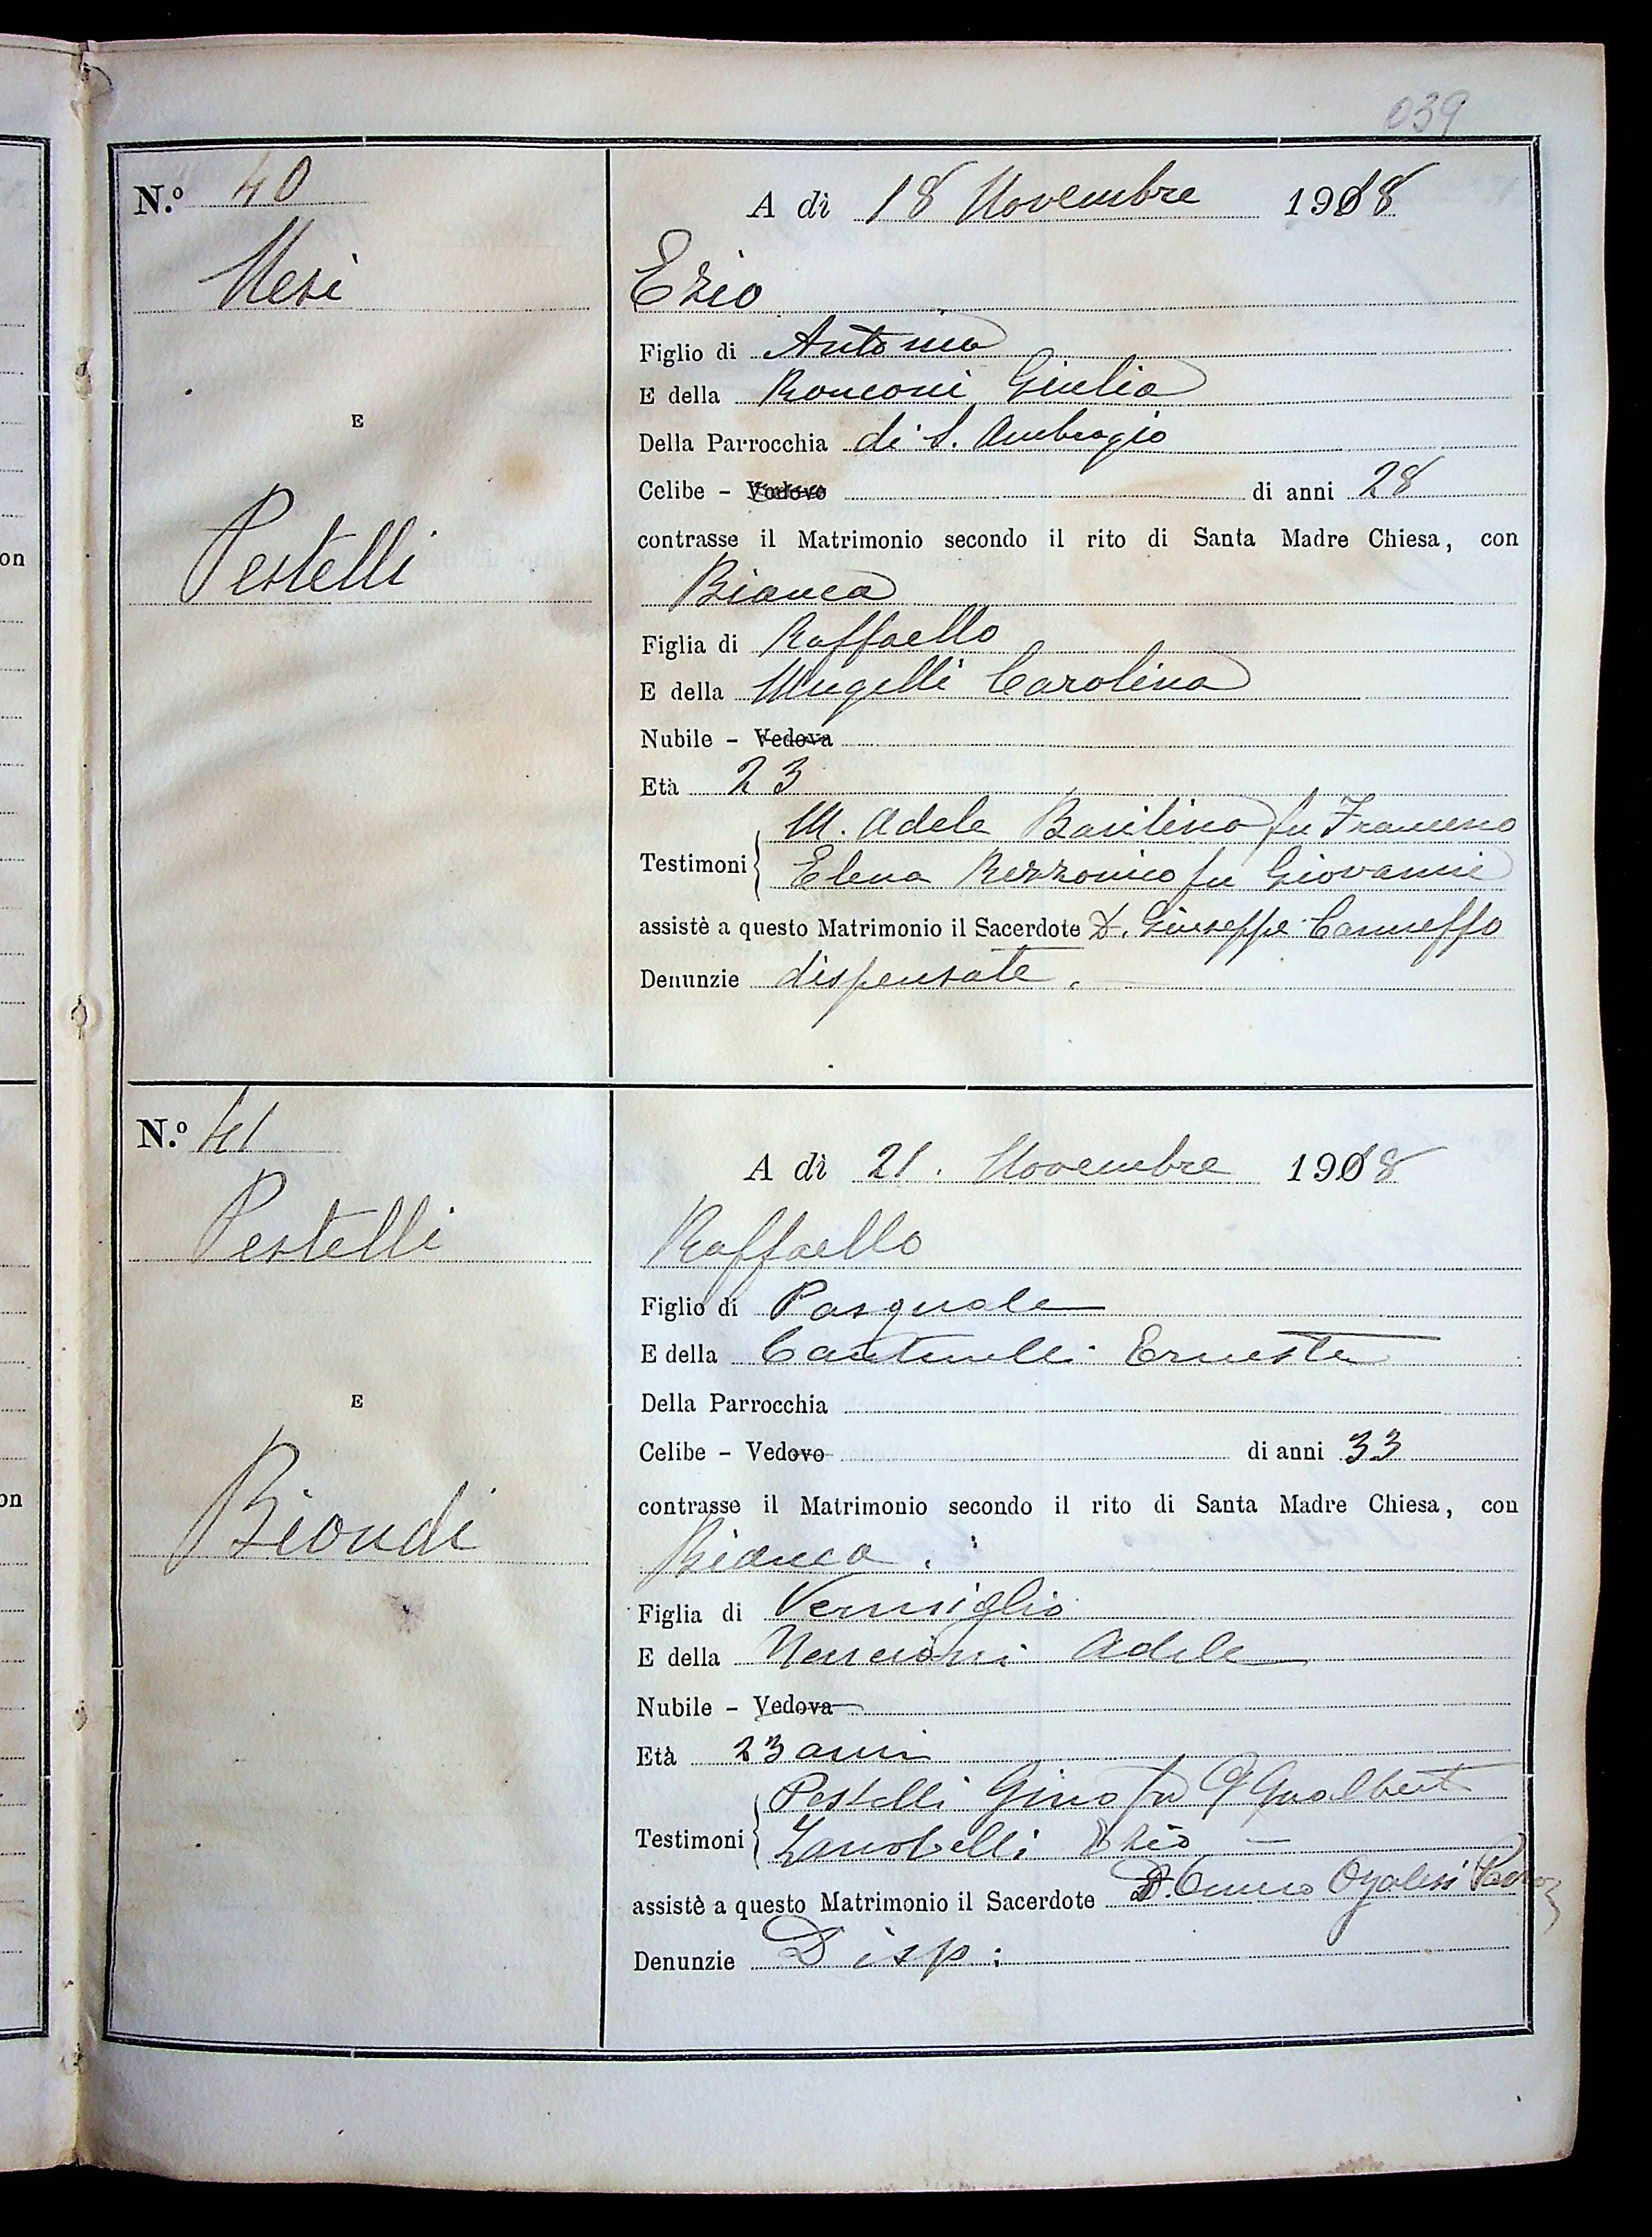 039
N.º 40
A dì 18 Novembre 1918
Nesi
Ezio
Figlio di Antonio
E della Ronconi Giulia
E
Della Parrocchia di S. Ambrogio
Celibe - Vedovo di anni 28
contrasse il Matrimonio secondo il rito di Santa Madre Chiesa, con
Pestelli
Bianca
Figlia di Raffaello
E della Mugelli Carolina
Nubile - Vedova
Età 23
M. Adele fu Francesco
Testimoni
Elena Rezzonico fu Giovanni
assistè a questo Matrimonio il Sacerdote D. Giuseppe
Denunzie dispensate.
on
N.º 41
A dì 21. Novembre 1918
Pestelli
Raffaello
Figlio di Pasquale
E della Ernesta
E
Della Parrocchia
Celibe - Vedovo di anni 33
contrasse il Matrimonio secondo il rito di Santa Madre Chiesa, con
on
Biondi
Bianca.
Figlia di Vermiglio
E della Nencioni Adele
Nubile - Vedova
Età 23 anni
Pestelli Gino fu G Gualbert
Testimoni
Zanobelli Ezio
assistè a questo Matrimonio il Sacerdote D.
Denunzie Disp: